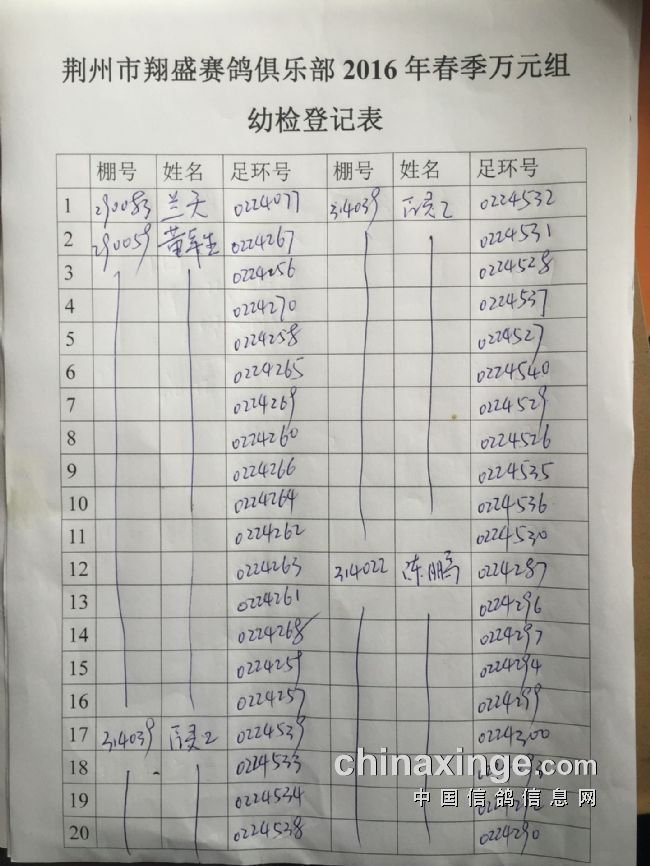 荆州市翔盛赛鸽俱乐部 2016 年春季万元组
幼检登记表
棚号 姓名 足环号 棚号 姓名 足环号
1 290083 兰天 0224077 314039 0224532
2 290059 黄军生 0224267 0224531
3 0224256 0224528
4 0224270 0224537
5 0224258 0224527
6 0224265 0224540
7 0224269 0224529
8 0224260 0224526
9 0224266 0224535
10 0224264 0224536
11 0224262 0224530
12 0224263 314022 陈鹏 0224287
13 0224261 0224296
14 0224268 0224297
15 0224259 0224294
16 0224257 0224299
17 314039 0224539 0224300
18 0224533
19 0224534
20 0224538 0224290
chinaxinge.com
中国信鸽信息网